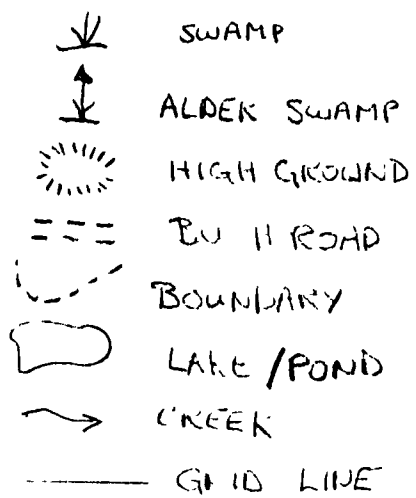 SWAMP
ALDER SWAMP
HIGH GROUND
ROAD
BOUNDARY
LAKE/POND
CREEK
GRID LINE